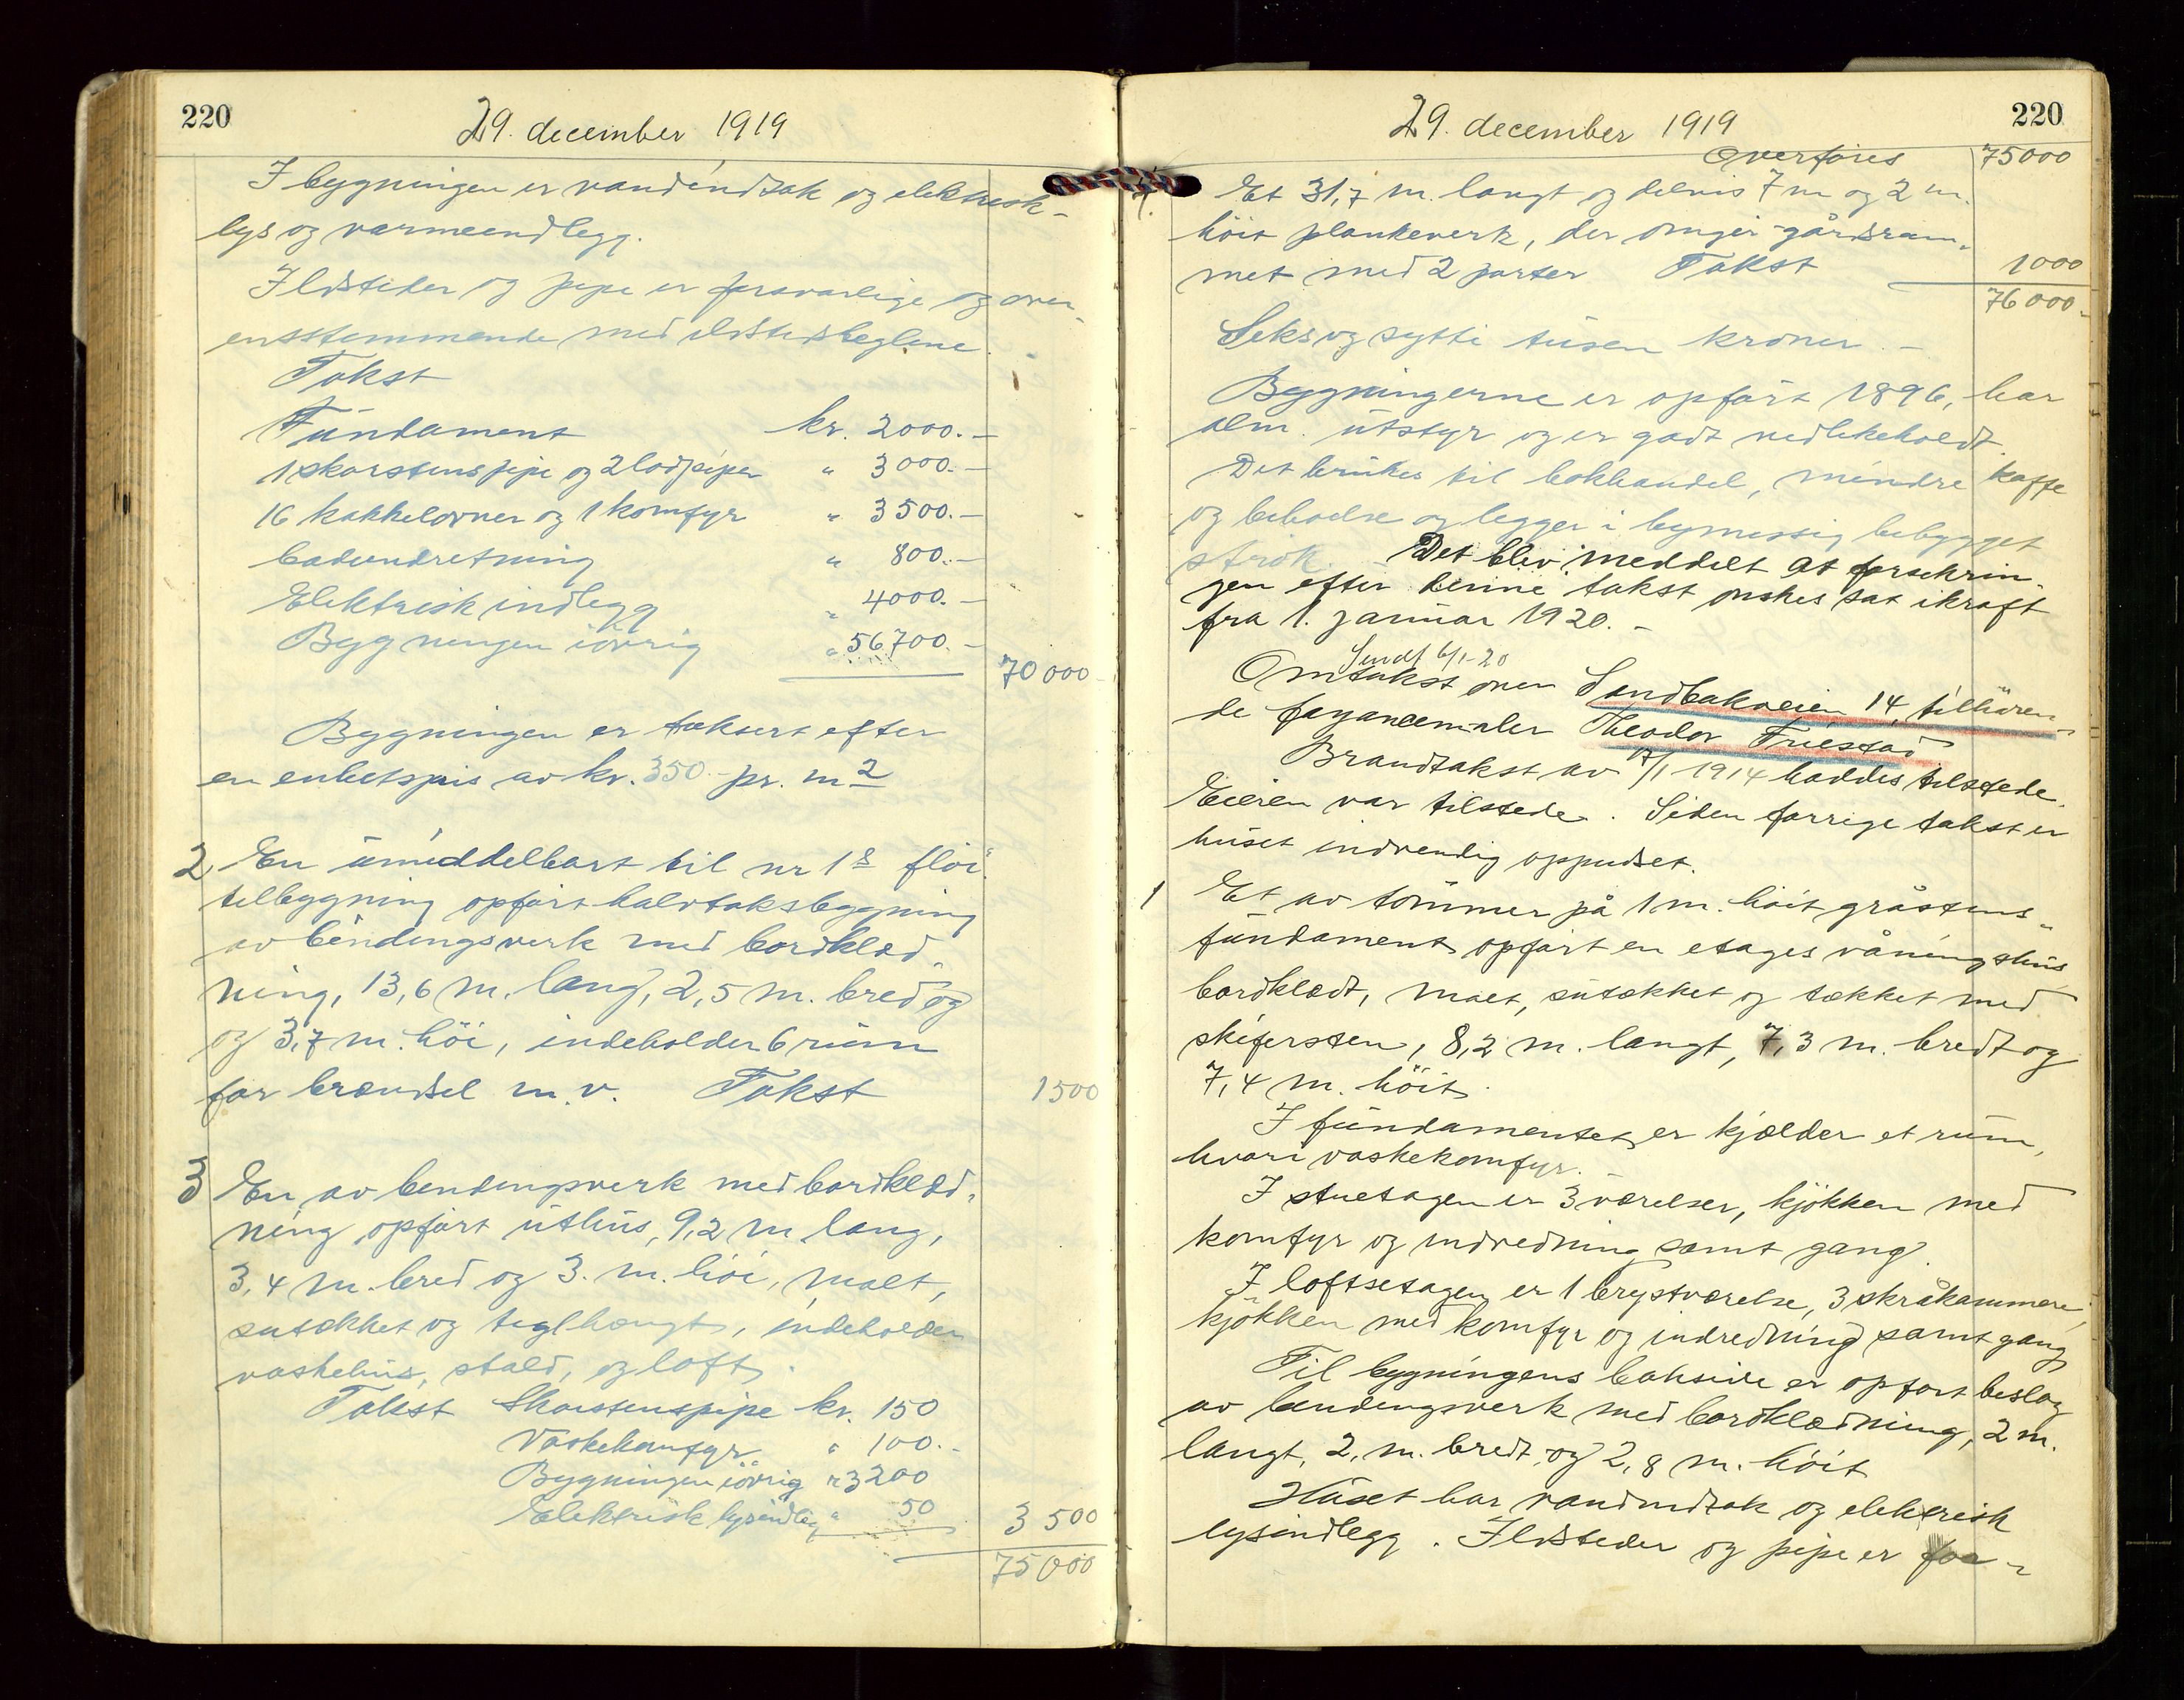 220
29. december 1919
I bygningen er vandindtak og elektrisk-
lys og varmeindlegg.
Ildsteder og pipe er forsvarlige og over-
ensstemmende med ildstedsreglene.
Takst
Fundament kr. 2000.-
1 skorstenspipe og 2 lodpiper " 3000.-
16 kakkelovner og 1 komfyr " 3500.-
badeindretning " 800.-
Elektrisk indlegg " 4000.-
Bygningen iövrig " 56700.-
70000
Bygningen er taksert efter
en enhetspris av kr. 350.- pr. m2
2 En umiddelbart til nr 1s flöi-
tilbygning opført halvtaksbygning
av bindingsverk med bordklæd-
ning, 13,6 m. lang, 2,5 m. bred og
og 3,7 m. höi, indeholder 6 rum
for brændsel m.v. Takst 1500
3 En av bindingsverk med bordklæd-
ning opført uthus, 9,2 m lang,
3,4 m. bred og 3. m. höi, malt,
sutækket og teglhængt, indeholder
vaskehus, stald, og loft.
Takst Skorstenspipe kr. 150
Vaskekomfyr " 100.-
Bygningen iövrig " 3200
Elektrisk lysindleg " 50
3500
75000
220
29. december 1919
Overføres 75000
4. Et 31,7 m. langt og delvis 7 m og 2 m.
höit plankeverk, der omgir gårdsrum-
met med 2 porter Takst 1000
76000.-
Seks og sytti tusen kroner.-
Bygningerne er opført 1896, har
alm. utstyr og er godt vedlikeholdt.
Det brukes til bokhandel, mindre kaffe
og beboelse og ligger i bymessig bebygget
strök. Det blev meddelt at forsikrin-
gen efter denne takst ønskes sat ikraft
fra 1. januar 1920.-
Sendt 6/1-20
Omtakst over Sandbakveien 14, tilhören-
de fayancemaler Theodor Friestad
Brandtakst av 17/1 1914 haddes tilstede.
Eieren var tilstede. Siden forrige takst er
huset indvendig oppudset.
1 Et av tömmer på 1 m. höit gråstens-
fundament opført en etages våningshus
bordklædt, malt, sutækket og tækket med
skifersten, 8,2 m. langt, 7,3 m. bredt og
7,4 m. höit.
I fundamentet er kjælder et rum,
hvori vaskekomfyr.-
I stuetagen er 3 værelser, kjökken med
komfyr og indredning samt gang.
I loftsetagen er 1 brystværelse, 3 skråkammere,
kjökken med komfyr og indredning samt gang
Til bygningens bakside er opført beslag
av bindingsverk med bordklædning, 2 m.
langt, 2, m. bredt og 2,8 m. höit
Huset har vandindtak og elektrisk
lysindlegg. Ildsteder og pipe er for-